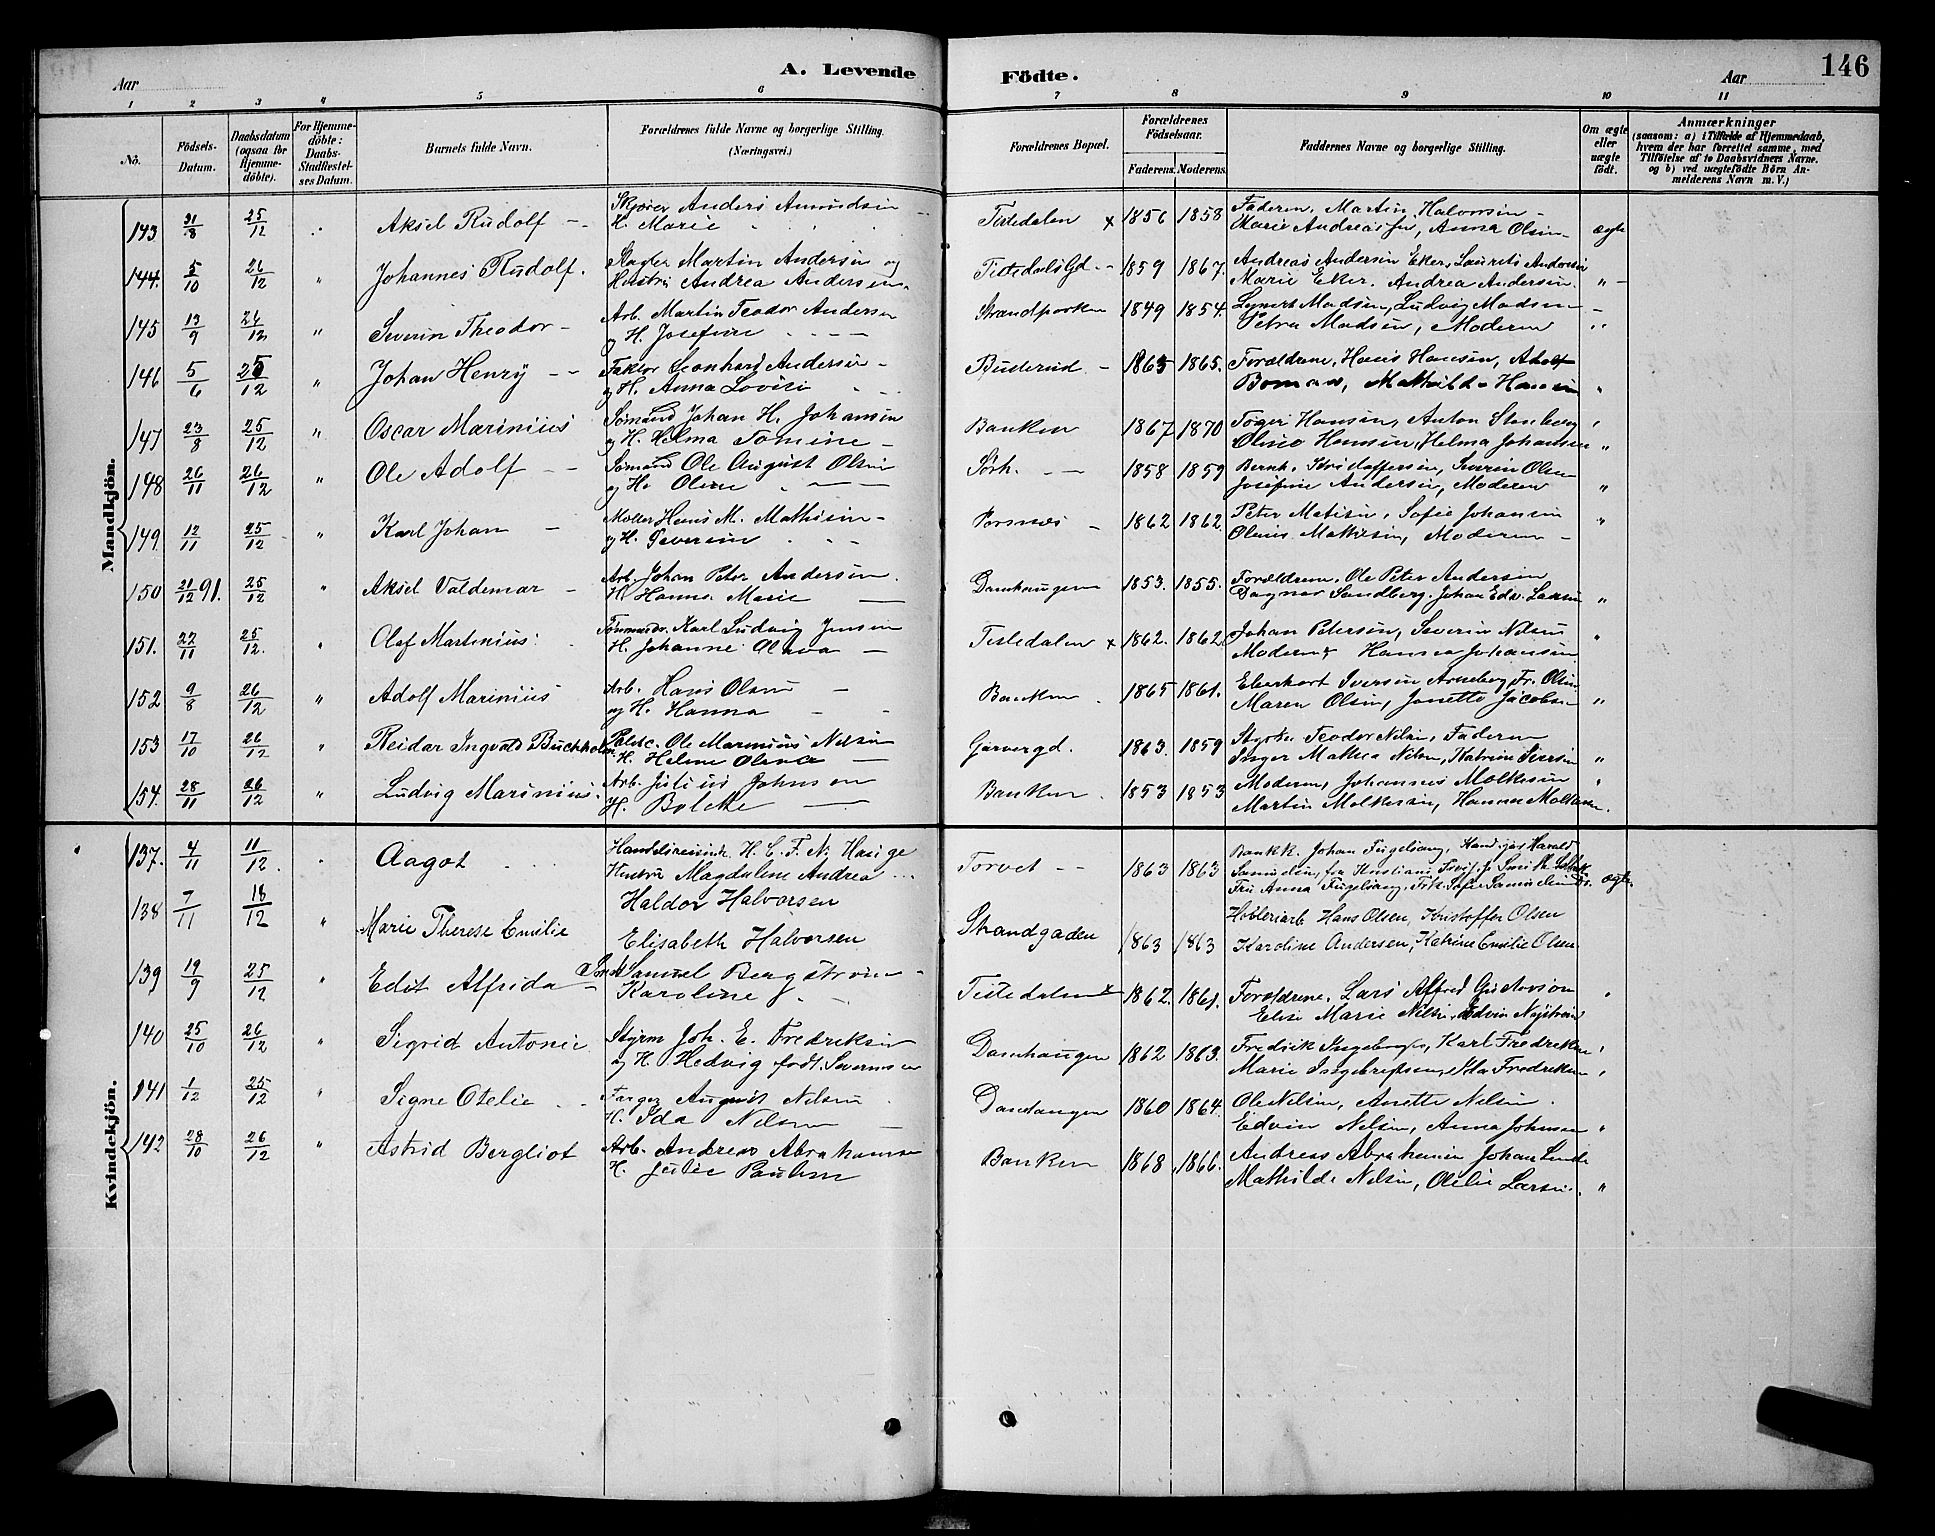 A. Levende Födte.
146
Aar Aar
1 2 3 4 5 6 7 8 9 10 11
No.
Födsels-Datum.
Daabsdatum (ogsaa för Hjemme-döbte).
For Hjemme-döbte: Daabs-Stadfæstel-ses Datum.
Barnets fulde Navn.
Forældrenes fulde Navne og borgerlige Stilling. (Næringsvei.)
Forældrenes Bopæl.
Forældrenes Födselsaar.
Faderens. Moderens.
Faddernes Navne og borgerlige Stilling.
Om ægte eller uægte födt.
Anmærkninger
(saasom: a) i Tilfælde af Hjemmedaab, hvem der har forrettet samme, med Tilföielse af to Daabsvidners Navne. og b) ved uægtefödte Börn An-melderens Navn m. V.)
Mandkjön.
143 21/8 25/12 Aksel Rudolf Anders Amundsen Tistedalen x 1856 1858 Faderen, Martin Halvorsen
H. Marie Anna Olsen ægte
144. 5/10 26/12 " Johannes Rudolf. Martin Andersen og Tistedals Gd. 1859 1867. Andreas Andersen Eker, Laurits Andersen
Hustru Andrea Andersen Marie Eker. Andrea Andersen "
145 13/9 26/12 " Severin Theodor Arb. Martin Teodor Andersen 1849 1854. Madsen, Ludvig Madsen
og H. Josefine Petra Madsen, Moderen "
146 5/6 25/12 " Johan Henry Faktor Leonhard Andersen Buderud 1865 1865. Forældrene, Hans Hansen, Adolf
og H. Anna Lovise Boman, Mathilde Hansen "
147 23/8 25/12 " Oscar Marinius Sømand Johan H. Johansen Banken 1867 1870 Hansen, Anton Stenberg
og H. Helma Tomine Hansen, Helma Johansen "
148 26/11 26/12 " Ole Adolf Sømand Ole August Olsen Sørh. 1858 1859 Bernh. Kristoffersen, Severin Olsen
og H. Olene Josefine Andersen, Moderen "
149 12/11 25/12 " Karl Johan Møller Hans M. Mathisen Porsnes 1862 1862. Peter Matisen, Sofie Johansen
og H. Severine Mathisen, Moderen "
150 21/12 91. 25/12 " Aksel Valdemar Arb. Johan Peter Andersen. Damhaugen 1853. 1855. Forældrene, Ole Peter Andersen
H. Hanna Marie Dagnar Sandberg. Johan Edv. Larsen "
151. 22/11 25/12. " Olaf Martinius Karl Ludvig Jensen Tistedalen x 1862. 1862 Johan Petersen, Severin Nilsen
H. Johanne Olava Moderen, Johansen "
152 9/8 26/12 " Adolf Marinius Arb. Hans Olsen Banken 1865 1861. Iversen Arneberg Fr. Olsen
og H. Hanna Maren Olsen, Jonette Jacobsen "
153 17/10 26/12 " Reidar Ingvald Buchholm Politic. Ole Marinius Nilsen Garvergd. 1863. 1859 Teodor Nilsen, Faderen
H. Helene Olava Inger Mathea Nilsen, Katrine Iversen "
154. 28/11 26/12 " Ludvig Marinius. Arb. Julius Johnsen Banken 1853 1853 Moderen, Johannes Molkesen
H. Bolette Martin Molkesen, Hanna Molkesen. "
Kvindekjön.
137. 4/11 11/12. Aagot Handelsreisende H. C. F. N. Hauge Torvet 1863 1863 Bankk. Johan Fugelsang, Harald
Hustru Magdalene Andrea Samuelsen
Fru Anna Fugelsang, Frk. Sofie Samuelsen ægte.
138 7/11 18/12 " Marie Therese Emilie Haldor Halvorsen Strandgaden 1863 1863 Høvleriarb. Hans Olsen, Kristoffer Olsen
Elisabeth Halvorsen Karoline Andersen, Katrine Emilie Olsen
139 19/9 25/12 " Edit Alfrida Samuel Bergstrøm Tistedalen x 1862. 1861. Forældrene, Lars Alfred Gustavson
Karoline Elise Marie Nilsen, Edvin Nystrøm "
140 25/10 26/12 " Sigrid Antonie Styrm Joh. E. Fredriksen Damhaugen 1862 1863. Fredrik Ingebregtsen, Karl Fredriksen
og H. Hedvig født Severinsen Marie Ingebrigtsen, Ida Fredriksen "
141 1/12 25/12 " Signe Otelie Farger August Nilsen Damhaugen 1860 1864. Ole Nilsen, Anette Nilsen.
H. Ida Nilsen Edvin Nilsen, Anna Johnsen "
142 28/10 26/12 " Astrid Bergliot Arb. Andreas Abrahamsen Banken 1868 1866. Andreas Abrahamsen Johan Linde
H. Julie Pauline Mathilde Nilsen, Otilie Larsen. "